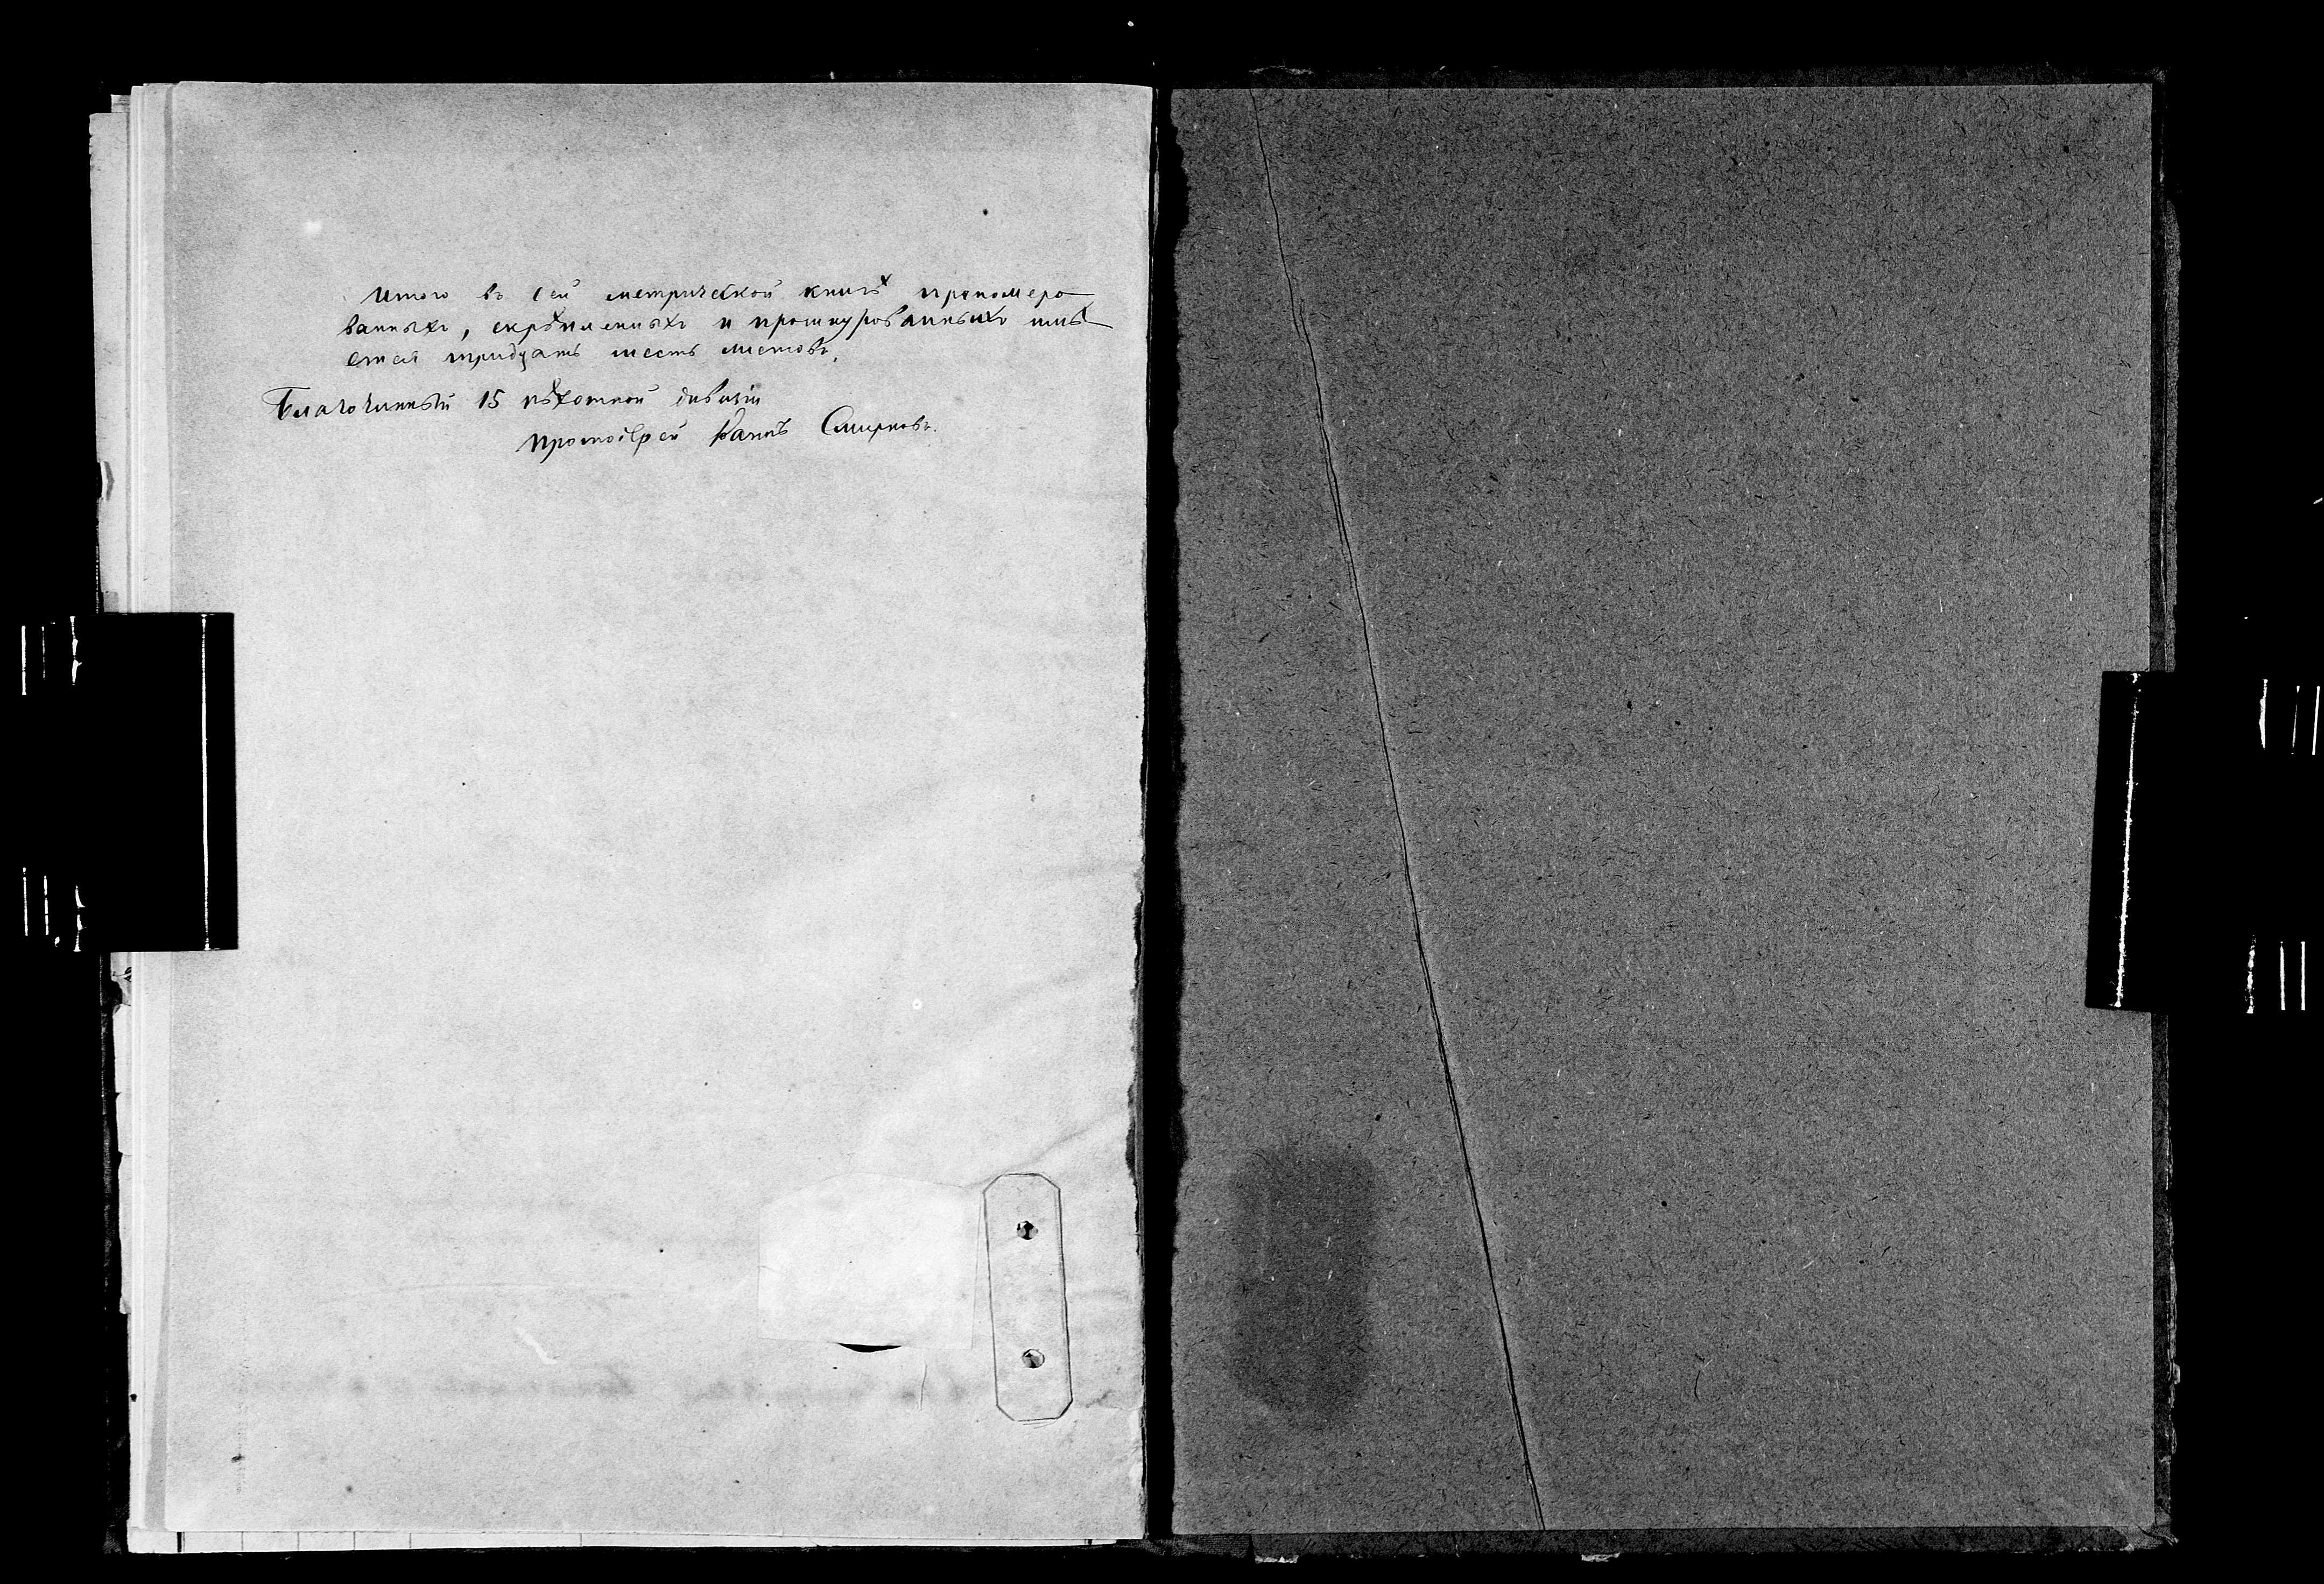 Итого въ сей метрической книгѣ прономеро
ванныхъ, скрѣпленныхъ и прошнурованныхъ имѣ
ется тридцать шесть листовъ.
Благочинный 15 пѣхотной дивизіи
протоіерей Смирновъ.